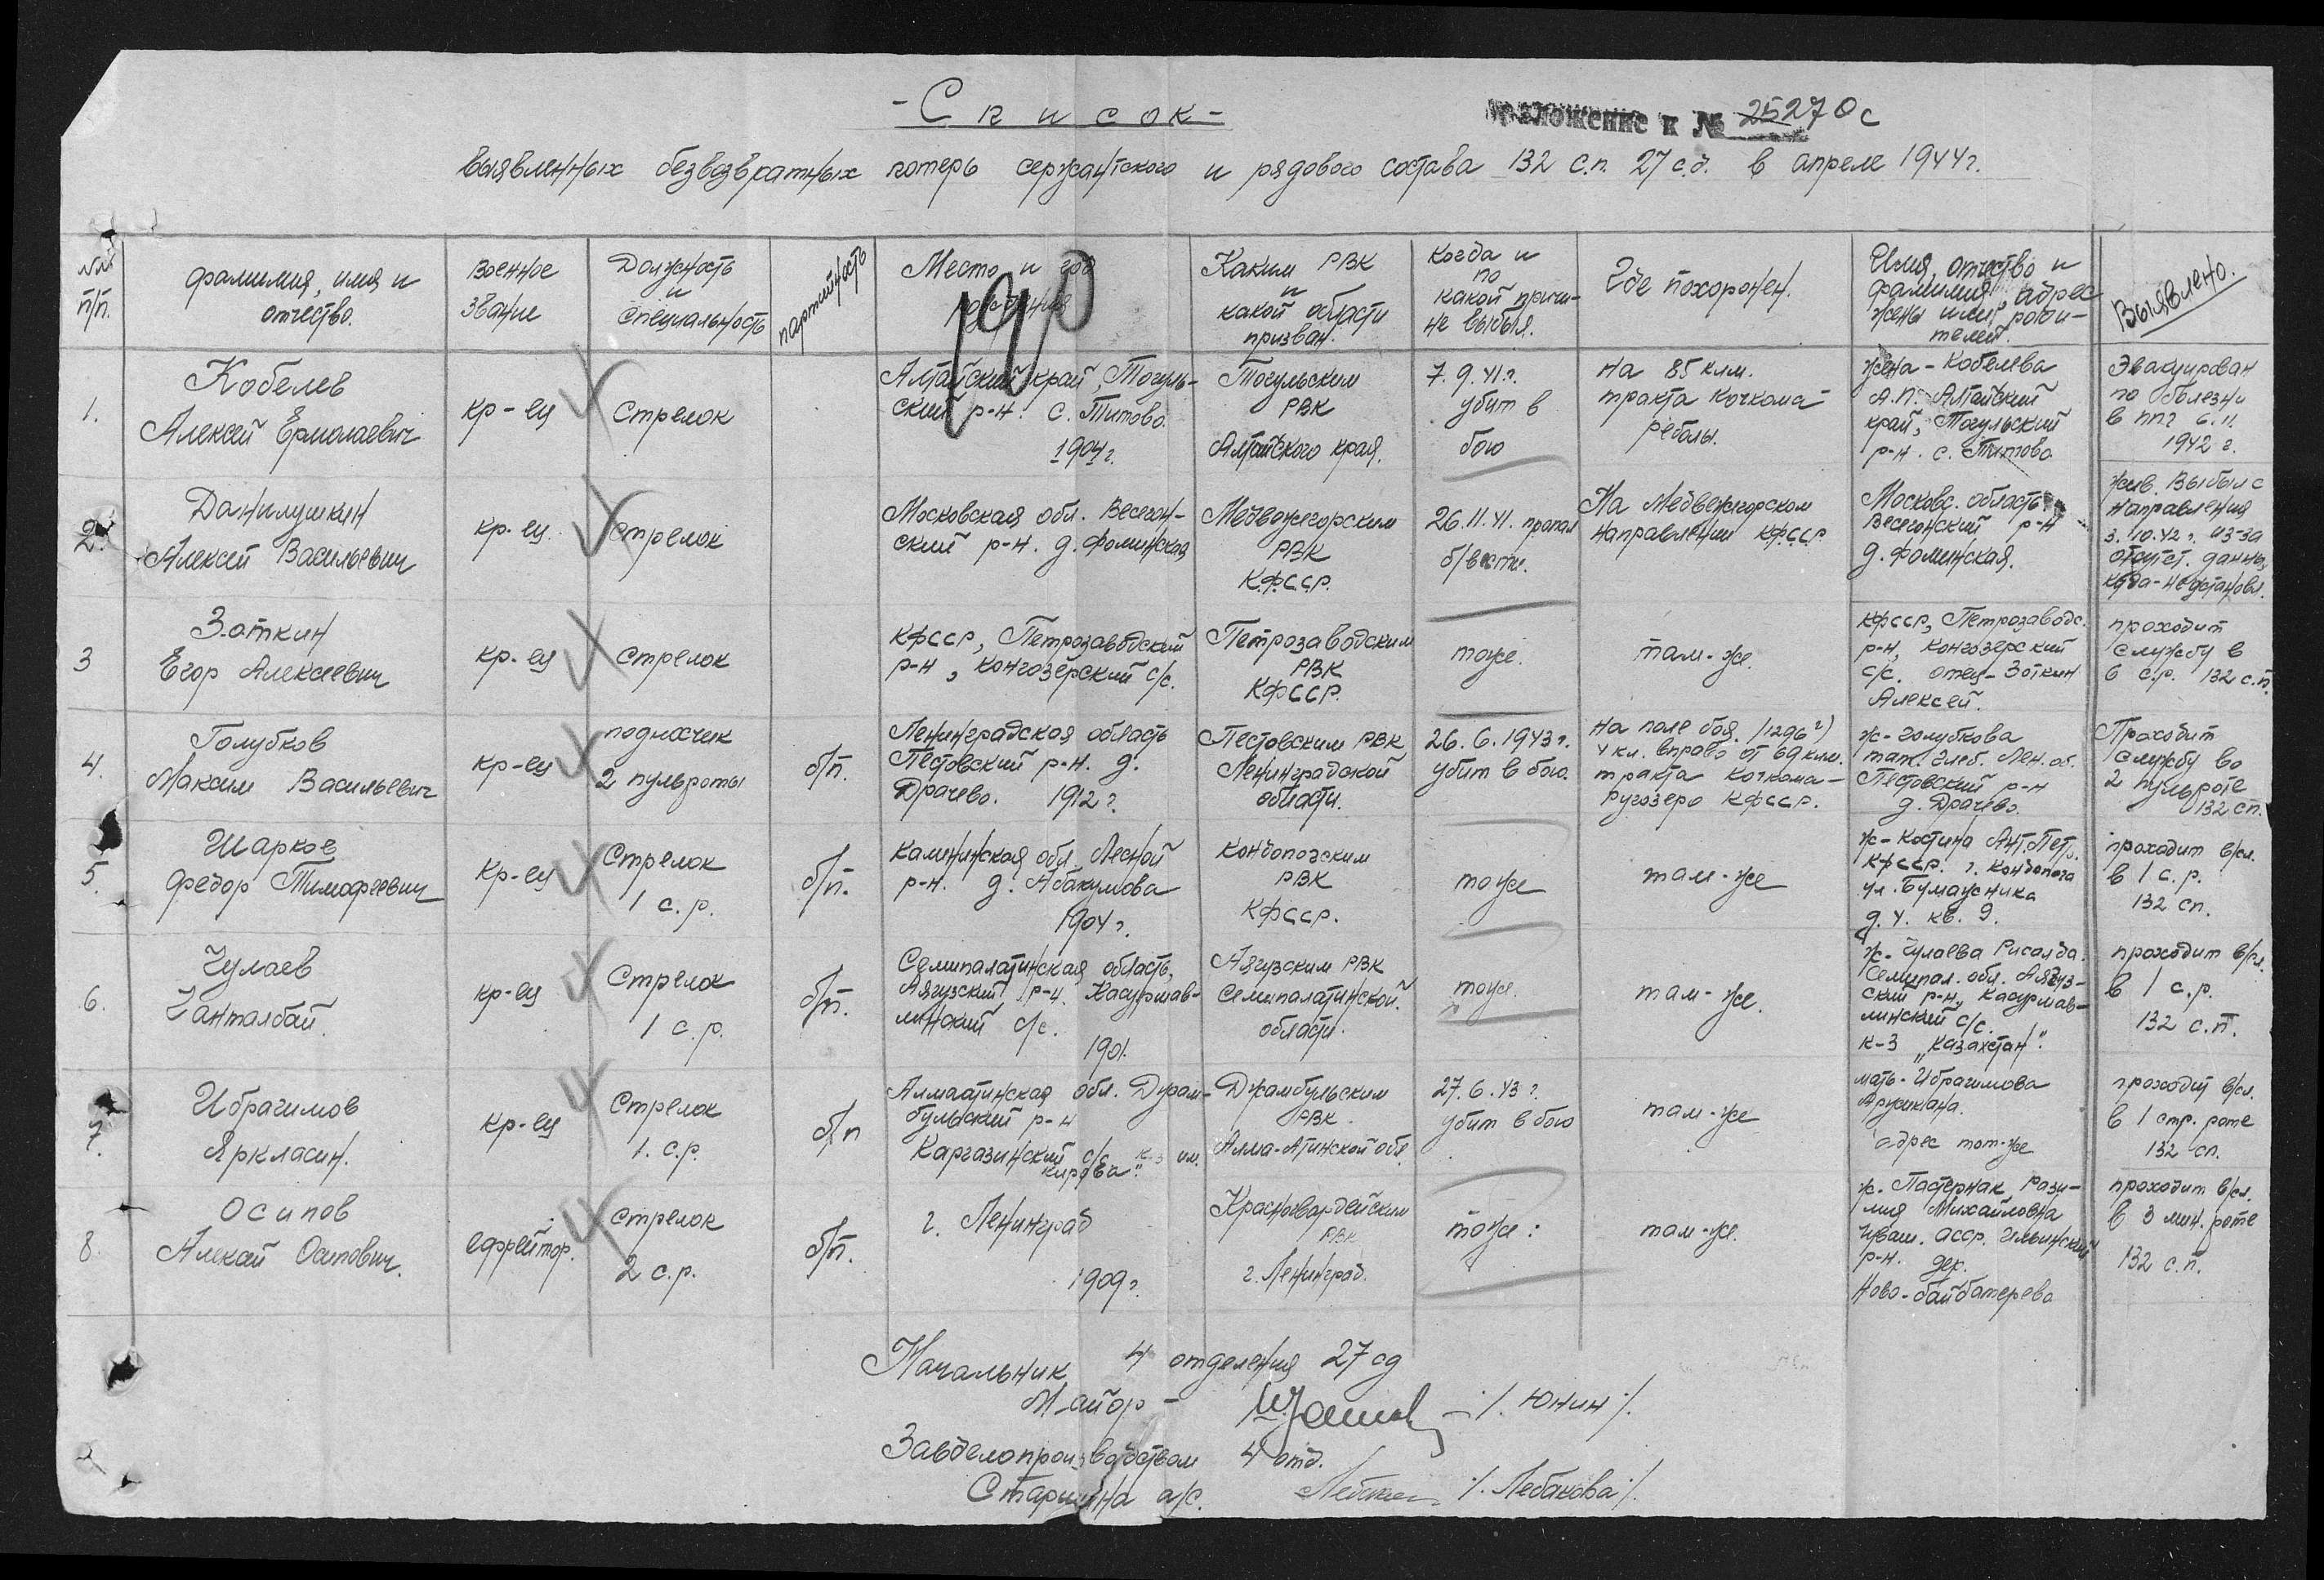 - Список -
Приложение к № 25270с
выявленных безвозвратных потерь сержантского и рядового состава 132 с.п. 27 с.д. в апреле 1944 г.
№№ п/п.
фамилия, имя и
отчество.
Военное
звание
Должность
и
специальность
партийность
Место и год
рождения
190
Каким РВК
и
какой области
призван.
Когда и
по
какой причи-
не выбыл.
Где похоронен.
Имя, отчество и
фамилия, адрес
жены или роди-
телей.
Выявлено.
1.
Кобелев
Алексей Ермолаевич
кр-ец
Стрелок
Алтайский край, Тогуль-
ский р-н. с. Титово.
1904 г.
Тогульским
РВК
Алтайского края.
7.9.41 г.
убит в
бою
на 85 клм.
тракта Кочкома-
Реболы.
жена - Кобелева
А.П. Алтайский
край, Тогульский
р-н. с. Титово
Эвакуирован
по болезни
в ппг 6.11.
1942 г.
2.
Данилушкин
Алексей Васильевич
кр-ец.
стрелок
Московская обл. Весегон-
ский р-н. д. Фоминская
Медвежегорским
РВК
КФССР.
26.11.41. пропал
б/вести.
На Медвежгорском
направлении КФССР
Московс. область
Весегонский р-н
д. Фоминская.
жив. Выбыл с
направления
3.10.42 г. из-за
отсутст. данны,
куда - не установл.
3
Зоткин
Егор Алексеевич
кр-ец
стрелок
КФССР, Петрозаводский
р-н, Конгозерский с/с.
Петрозаводским
РВК
КФССР.
тоже.
там-же.
КФССР, Петрозаводс.
р-н, Конгозерский
с/с. отец - Зоткин
Алексей.
проходит
службу в
6 с.р. 132 с.п.
4.
Голубков
Максим Васильевич
кр-ец
подносчик
2 пульроты
б/п.
Ленинградская область
Пестовский р-н. д.
Драчево. 1912 г.
Пестовским РВК
Ленинградской
области.
26.6.1943 г.
убит в бою.
на поле боя. /1296 г)
4 кл. вправо от 69 клм.
тракта Кочкома-
Ругозеро КФССР.
ж - Голубкова
тат. Глеб. Лен. об.
Пестовский р-н
д. Драчево.
Проходит
службу во
2 пульроте
132 сп.
5.
Шарков
Федор Тимофеевич
Кр-ец
Стрелок
1 с.р.
б/п.
Калининская обл. Лесной
р-н. д. Абакумова
1904 г.
Кондопожским
РВК
КФССР.
тоже
там-же
ж - Костина Ант. Петр.
КФССР. г. Кондопога
ул. Бумажника
д. 4. кв. 9.
проходит в/сл.
в 1 с.р.
132 сп.
6.
Чулаев
Чанталбай.
кр-ец
Стрелок
1 с.р.
б/п.
Семипалатинская область,
Аягузский р-н. Касурмав-
линский с/с.
1901.
Аягузским РВК
Семипалатинской
области.
тоже.
там-же.
ж - Чулаева Рисалда.
Семипал. обл. Аягуз-
ский р-н, Касурмав-
линский с/с.
к-з „Казахстан".
проходит в/сл.
в 1 с.р.
132 с.п.
7.
Ибрагимов
Яркласин.
кр-ец
Стрелок
1. с.р.
б/п
Алмаатинская обл. Джам-
бульский р-н
Каргазинский с/с к-з им.
Кирова".
Джамбульским
РВК.
Алма-Атинской обл
27.6.43 г.
убит в бою
там-же
мать - Ибрагимова
Аружкана.
адрес тот-же
проходит в/сл.
в 1 стр. роте
132 сп.
8.
Осипов
Алексей Осипович.
ефрейтор.
стрелок
2 с.р.
б/п.
г. Ленинград
1909 г.
Красногвардейским
РВК
г. Ленинград.
тоже:
там-же.
ж. Пастернак Рази-
мия Михайловна
Чуваш. АССР. Ильинский
р-н. дер.
Ново-байбатерево
проходит в/сл.
в 3 мин. роте
132 с.п.
Начальник 4 отделения 27 сд
Майор - /. Юнин /.
Завделопроизводством 4 отд.
Старшина а/с. /. Лебакова /.